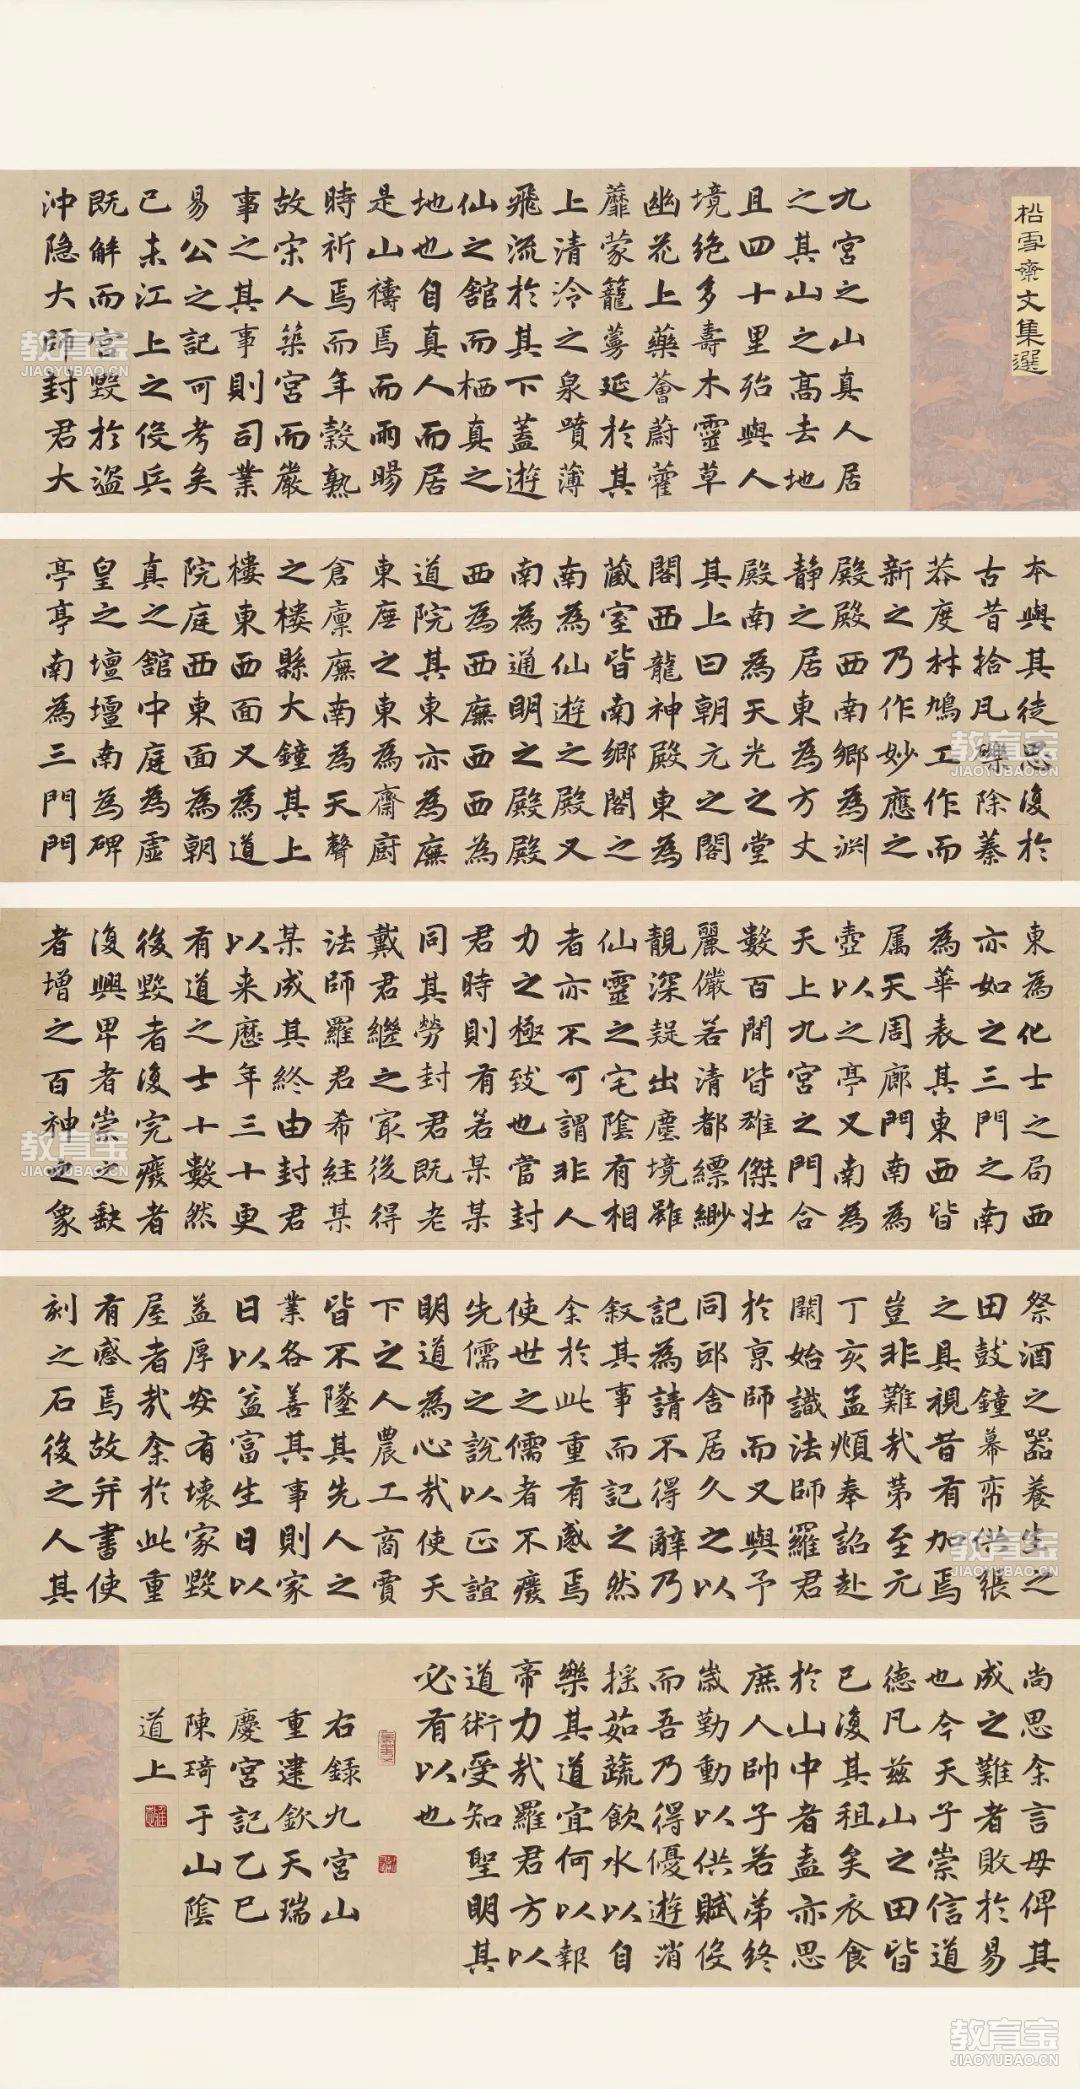 松雪齋文集選
九宮之山真人居
之其山之高去地
且四十里殆與人
境絕多壽木靈草
幽花上藥薈蔚藿
蘼蒙籠蔓延於其
上清泠之泉噴薄
飛流於其下蓋遊
仙之舘而栖真之
地也自真人而居
是山禱焉而雨暘
時祈焉而年穀熟
故宋人築宮而嚴
事之其事則司業
易公之記可考矣
已未江上之役兵
既解而宮毀於盜
沖隐大師封君大
本與其徒思復於
古昔拾凡礫除蓁
莽度材鳩工作而
新之乃作妙應之
殿殿西南鄉為渊
静之居東為方丈
殿南為天光之堂
其上曰朝元之閣
閣西龍神殿東為
藏室皆南鄉閣之
南為仙遊之殿又
南為通明之殿殿
西為西廡西西為
道院其東亦為廡
東廡之東為齋厨
倉廩廡南為天聲
之樓縣大鐘其上
樓東西面又為道
院庭西東面為朝
真之舘中庭為虛
皇之壇壇南為碑
亭亭南為三門門
東為化士之局西
亦如之三門之南
為華表其東西皆
属天周廊門南為
壺以之亭又南為
天上九宮之門合
數百間皆雄傑壯
麗儼若清都縹緲
靚深疑出塵境雖
仙靈之宅陰有相
者亦不可謂非人
力之極致也當封
君時則有若某某
同其勞封君既老
戴君繼之冣後得
法師羅君希絓某
某成其終由封君
以来歷年三十更
有道之士十數然
後毀者復完廢者
復興卑者崇之缺
者增之百神之象
祭酒之器養生之
田鼓鐘幕帟供張
之具視昔有加焉
豈非難哉第至元
丁亥孟頫奉詔赴
闕始識法師羅君
於京師而又與予
同邸舍居久之以
記為請不得辭乃
叙其事而記之然
余於此重有感焉
使世之儒者不廢
先儒之說以正誼
明道為心哉使天
下之人農工商賈
皆不墜其先人之
業各善其事則家
日以益富生日以
益厚安有壞家毀
屋者哉余於此重
有感焉故并書使
刻之石後之人其
尚思余言毋俾其
成之難者敗於易
也今天子崇信道
德凡兹山之田皆
已復其租矣衣食
於山中者盍亦思
庶人帥子若弟終
歲勤動以供賦役
而吾乃得優遊消
摇茹蔬飲水以自
樂其道宜何以報
帝力哉羅君方以
道術受知聖明其
必有以也
右録九宮山
重建欽天瑞
慶宮記乙巳
陳琦于山陰
道上
教育宝
JIAOYUBAO.CN
教育宝
JIAOYUBAO.CN
教育宝
JIAOYUBAO.CN
教育宝
JIAOYUBAO.CN
教育宝
JIAOYUBAO.CN